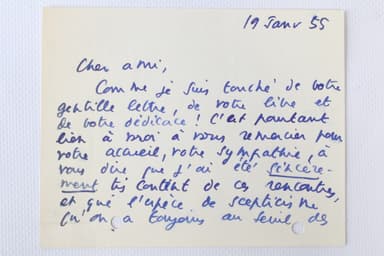 19 Janv 55
Cher ami,
Comme je suis touché de votre
gentille lettre, de votre livre et
de votre dédicace ! C'est pourtant
bien à moi à vous remercier pour
votre accueil, votre sympathie, à
vous dire que j'ai été sincère-
ment très content de ces rencontres,
et que l'espèce de scepticisme
qu'on a toujours au seuil des